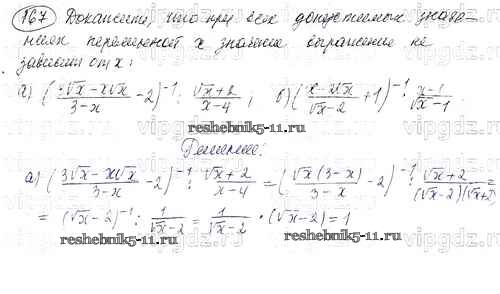 167 Докажите, что при всех допустимых значе-
ниях переменной х значение выражения не
зависит от х:
а) ((3√x − x√x)/(3−x) − 2)⁻¹ : (√x+2)/(x−4) ; б) ((x−x√x)/(√x−2) + 1)⁻¹ : (x−1)/(√x−1)
reshebnik5-11.ru
Решение:
а) ((3√x − x√x)/(3−x) − 2)⁻¹ : (√x+2)/(x−4) = ((√x(3−x))/(3−x) − 2)⁻¹ : (√x+2)/((√x−2)(√x+2)) =
= (√x−2)⁻¹ : 1/(√x−2) = 1/(√x−2) · (√x−2) = 1
reshebnik5-11.ru